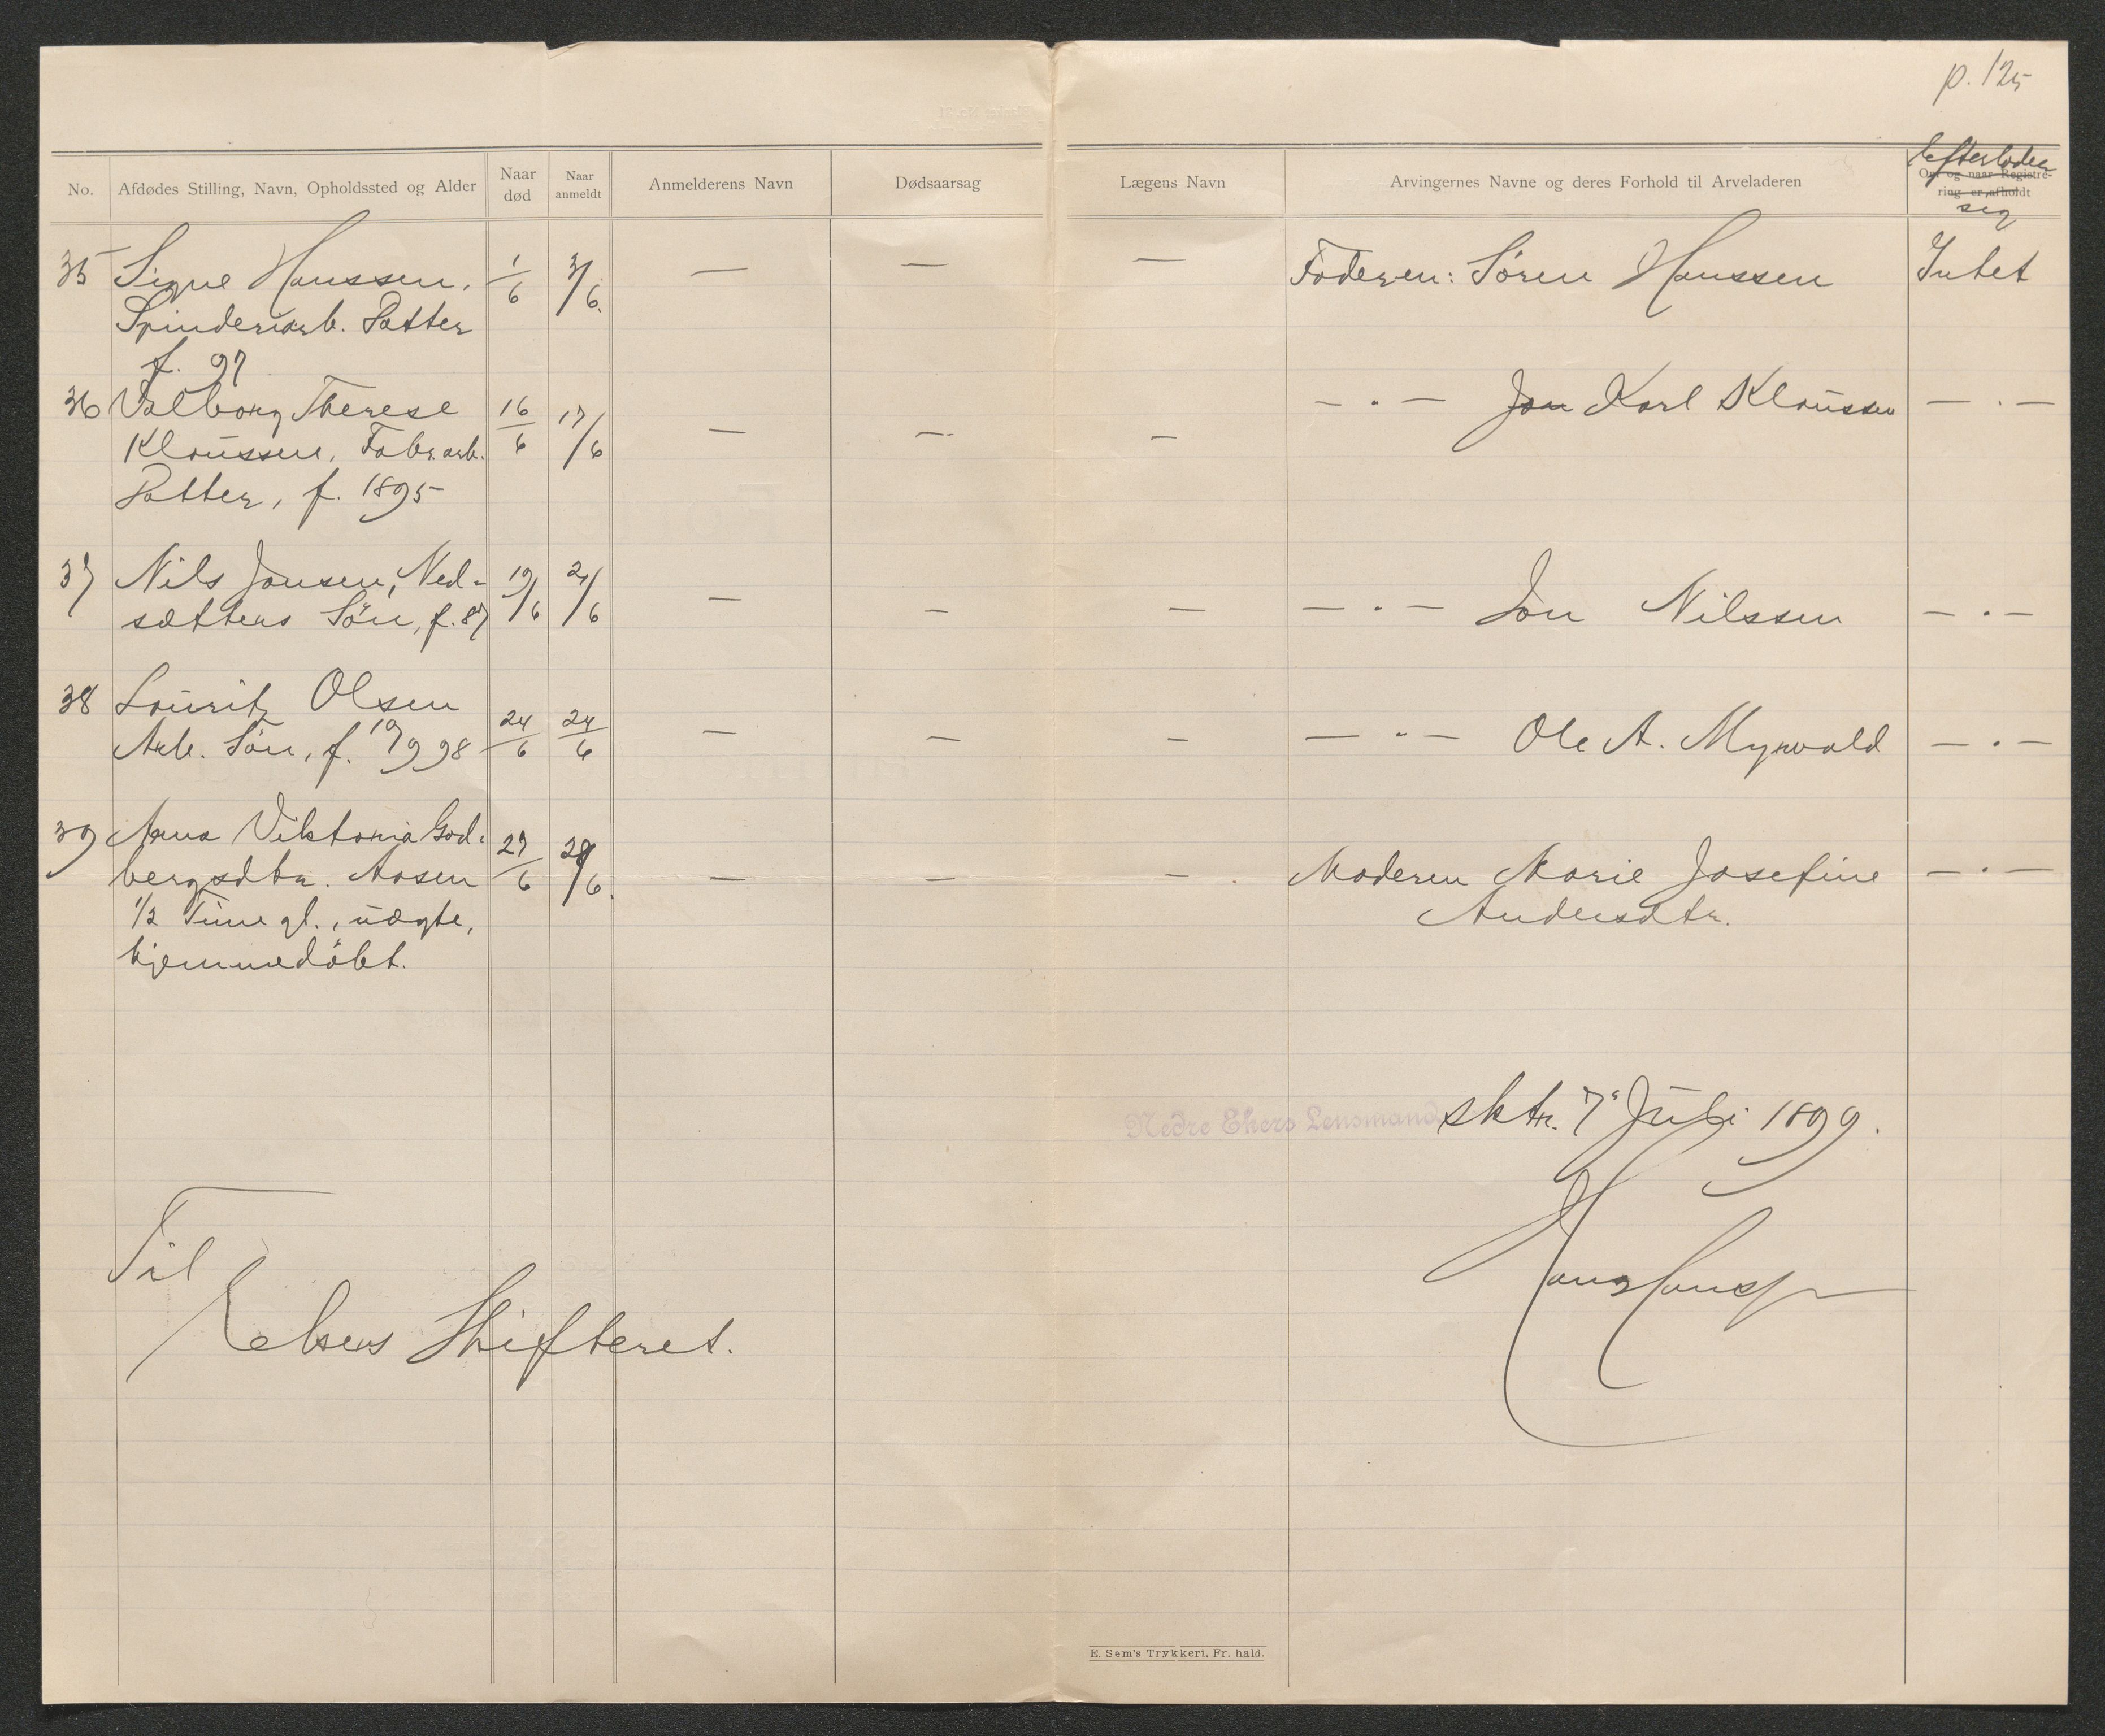 p. 125
Efterlader
sig
No. Afdødes Stilling, Navn, Opholdssted og Alder Naar død Naar anmeldt Anmelderens Navn Dødsaarsag Lægens Navn Arvingernes Navne og deres Forhold til Arveladeren Om og naar Registrering er afholdt
35 Signe Hanssen, 1/6 3/6 — — — Faderen: Søren Hanssen Intet
Spinderiarb. Datter
f. 97
36 Valborg Therese 16/6 17/6 — — — — " — Jan Karl Klaussen — " —
Klaussen, Fabr. arb.
Datter, f. 1895
37 Nils Jonsen, Ned- 19/6 21/6 — — — — " — Jon Nilssen — " —
sætters Søn, f. 87
38 Lauritz Olsen 24/6 24/6 — — — — " — Ole A. Myrvold — " —
Arb. Søn, f. 19/9 98
39 Anna Viktoria God- 27/6 28/6 — — — Moderen Marie Josefine — " —
bergsdtr. Aasen Andersdtr.
1/2 Time gl., uægte,
hjemmedøbt.
Nedre Ekers Lensmand sktr. 7' Juli 1899.
Hans Hansen
Til
Ekers Skifteret.
E. Sem's Trykkeri, Fr. hald.